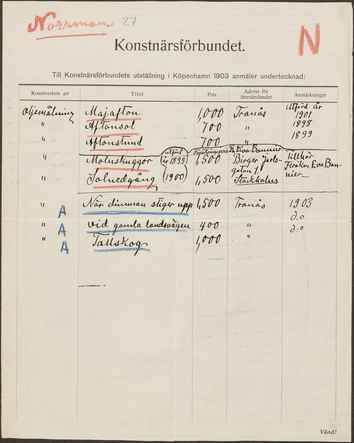 Norrman 27
N
Konstnärsförbundet.
Till Konstnärsförbundets utställning i Köpenhamn 1903 anmäler undertecknad:
Konstverkets art Titel Pris Adress för återsändandet Anmärkningar
Oljemålning Majafton 1,000 Tranås utförd år 1901
" Aftonsol 700 " 1898
" Aftonstund 700 1899
" Molnskuggor (utförd år 1899) 1,500 Fröken Eva Bonnier Birger Jarlsgatan tillhör Fröken Eva Bonnier
" Solnedgång (1900) 1,500 Stockholm
" A När dimman stiger upp 1,500 Tranås 1903
" A Vid gamla landsvägen 400 " d:o
" A Tallskog 1,000 " d:o
Vänd!